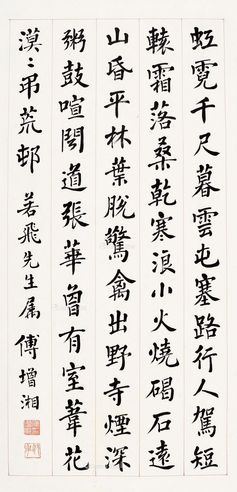 虹霓千尺暮雲屯塞路行人駕短
轅霜落桑乾寒浪小火燒碣石遠
山昏平林葉脫驚禽出野寺煙深
粥鼓喧聞道張華曾有室葦花
漠〻弔荒邨 若飛先生屬 傅增湘